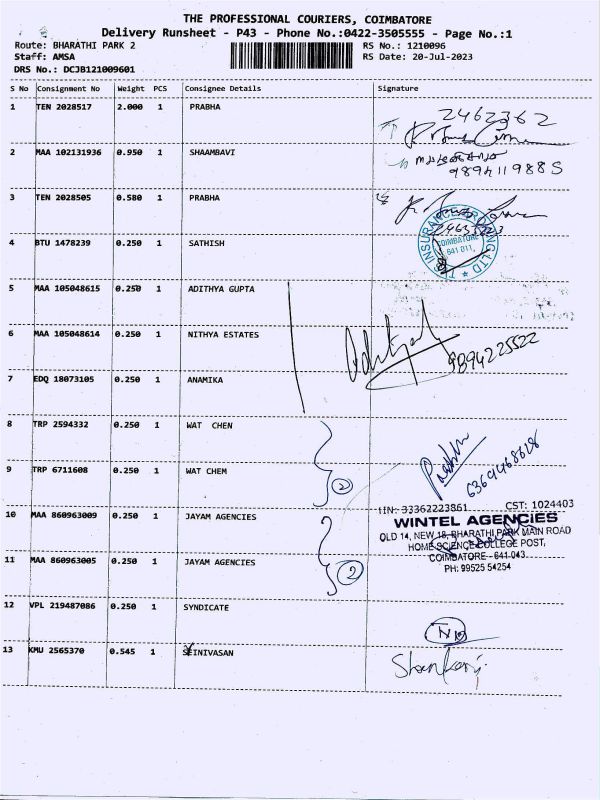 THE PROFESSIONAL COURIERS, COIMBATORE
Delivery Runsheet - P43 - Phone No.:0422-3505555 - Page No.:1
Route: BHARATHI PARK 2
RS No.: 1210096
Staff: AMSA
RS Date: 20-Jul-2023
DRS No.: DCJB121009601
S No Consignment No Weight PCS Consignee Details Signature
1 TEN 2028517 2.000 1 PRABHA
2462362
2 MAA 102131936 0.950 1 SHAAMBAVI
9894119885
3 TEN 2028505 0.580 1 PRABHA
4 BTU 1478239 0.250 1 SATHISH
COIMBATORE
641 011.
5 MAA 105048615 0.250 1 ADITHYA GUPTA
6 MAA 105048614 0.250 1 NITHYA ESTATES
9894225522
7 EDQ 18073105 0.250 1 ANAMIKA
8 TRP 2594332 0.250 1 WAT CHEN
9 TRP 6711608 0.250 1 WAT CHEM
2
TIN: 33362223861 CST: 1024403
10 MAA 860963009 0.250 1 JAYAM AGENCIES
WINTEL AGENCIES
OLD 14, NEW 18, BHARATHI PARK MAIN ROAD
HOME SCIENCE COLLEGE POST,
11 MAA 860963005 0.250 1 JAYAM AGENCIES
COIMBATORE - 641 043.
PH: 99525 54254
2
12 VPL 219487086 0.250 1 SYNDICATE
13 KMU 2565370 0.545 1 SEINIVASAN